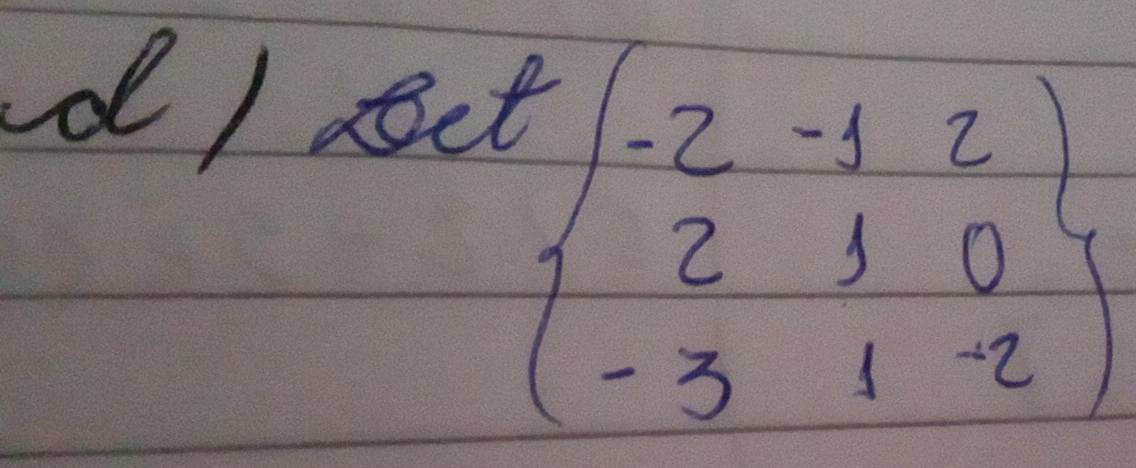 d) Det { -2 -1 2 }
2 1 0
-3 1 -2